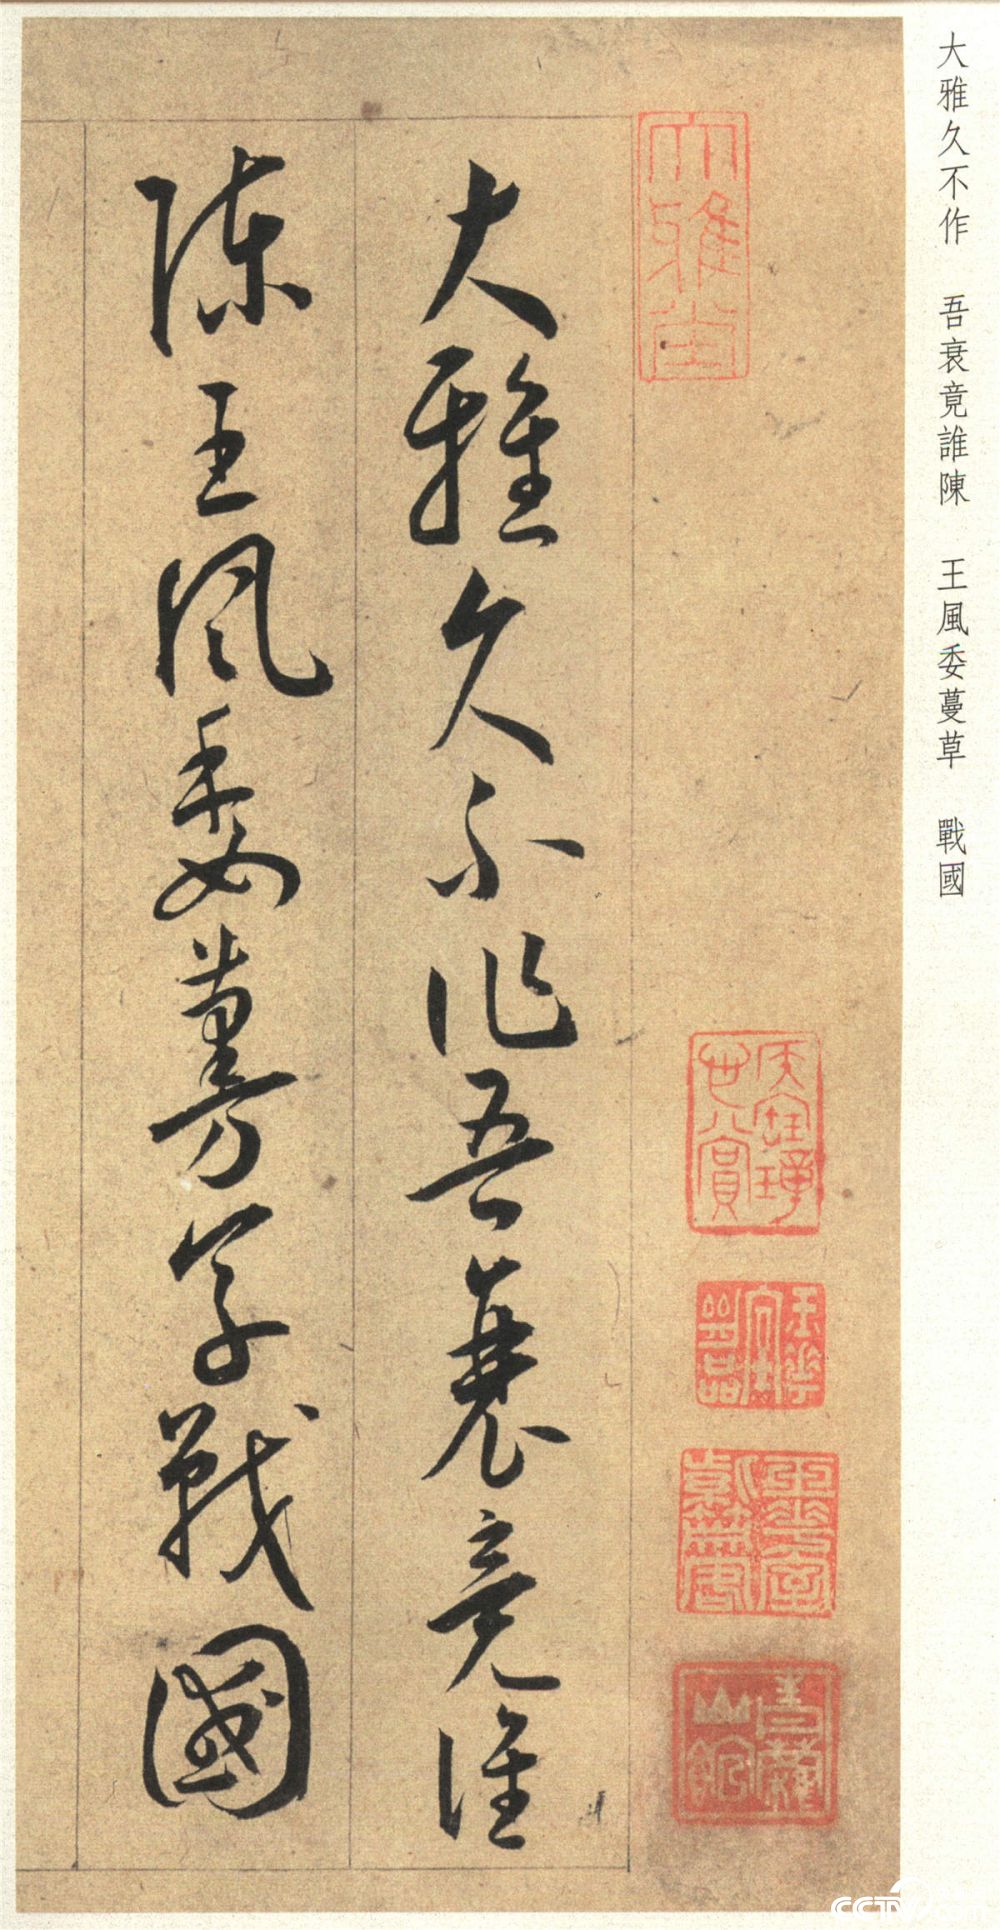 大雅久不作　吾衰竟誰陳　王風委蔓草　戰國
大雅堂
大雅久不作吾衰竟誰
陳王風委蔓草戰國
CCTV